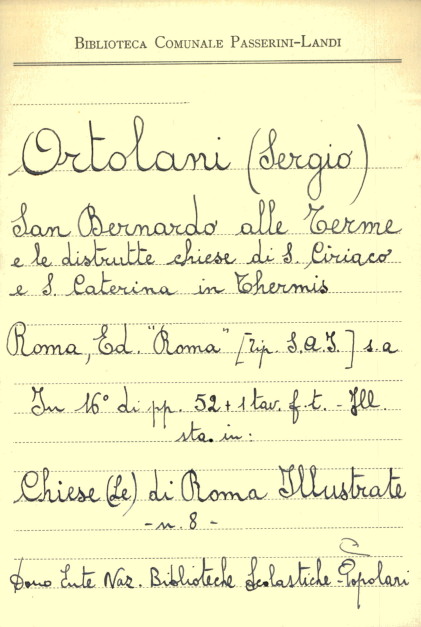 BIBLIOTECA COMUNALE PASSERINI-LANDI
Ortolani (Sergio)
San Bernardo alle Terme
e le distrutte chiese di S. Ciriaco
e S. Caterina in Thermis
Roma, Ed. "Roma" [Tip. S.A.I.] s.a
In 16° di pp. 52 + 1 tav. f. t. - Ill.
sta. in:
Chiese (Le) di Roma Illustrate
- n. 8 -
Dono Ente Naz. Biblioteche Scolastiche - Popolari